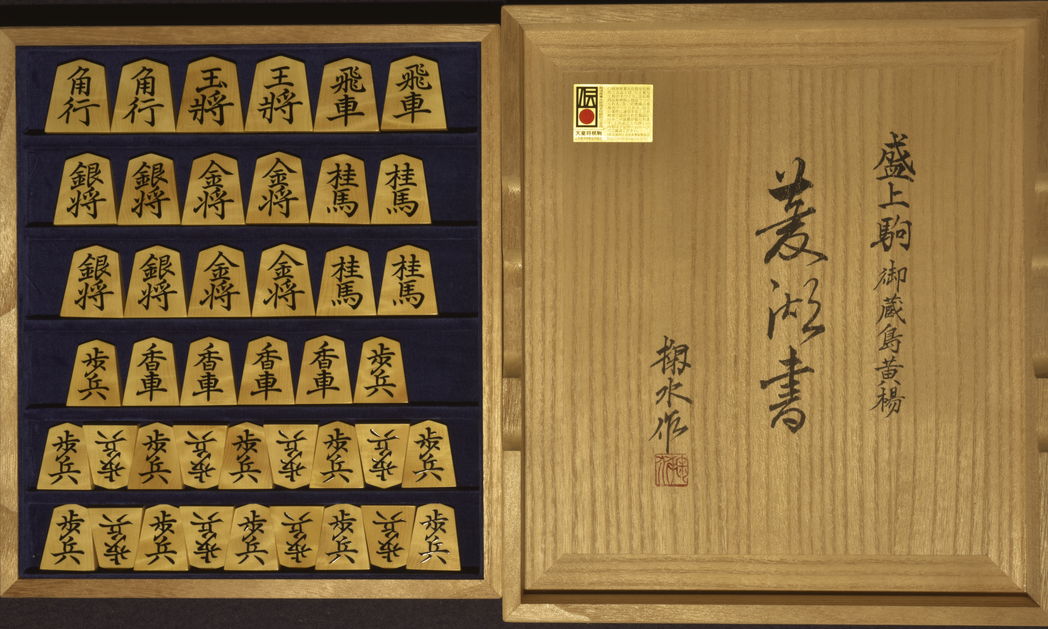 角行 角行 玉將 王將 飛車 飛車
銀将 銀将 金将 金将 桂馬 桂馬
銀将 銀将 金将 金将 桂馬 桂馬
歩兵 香車 香車 香車 香車 歩兵
歩兵 歩兵 歩兵 歩兵 歩兵 歩兵 歩兵 歩兵 歩兵
歩兵 歩兵 歩兵 歩兵 歩兵 歩兵 歩兵 歩兵 歩兵
盛上駒 御蔵島黄楊
菱湖書
掬水作
伝
天童将棋駒